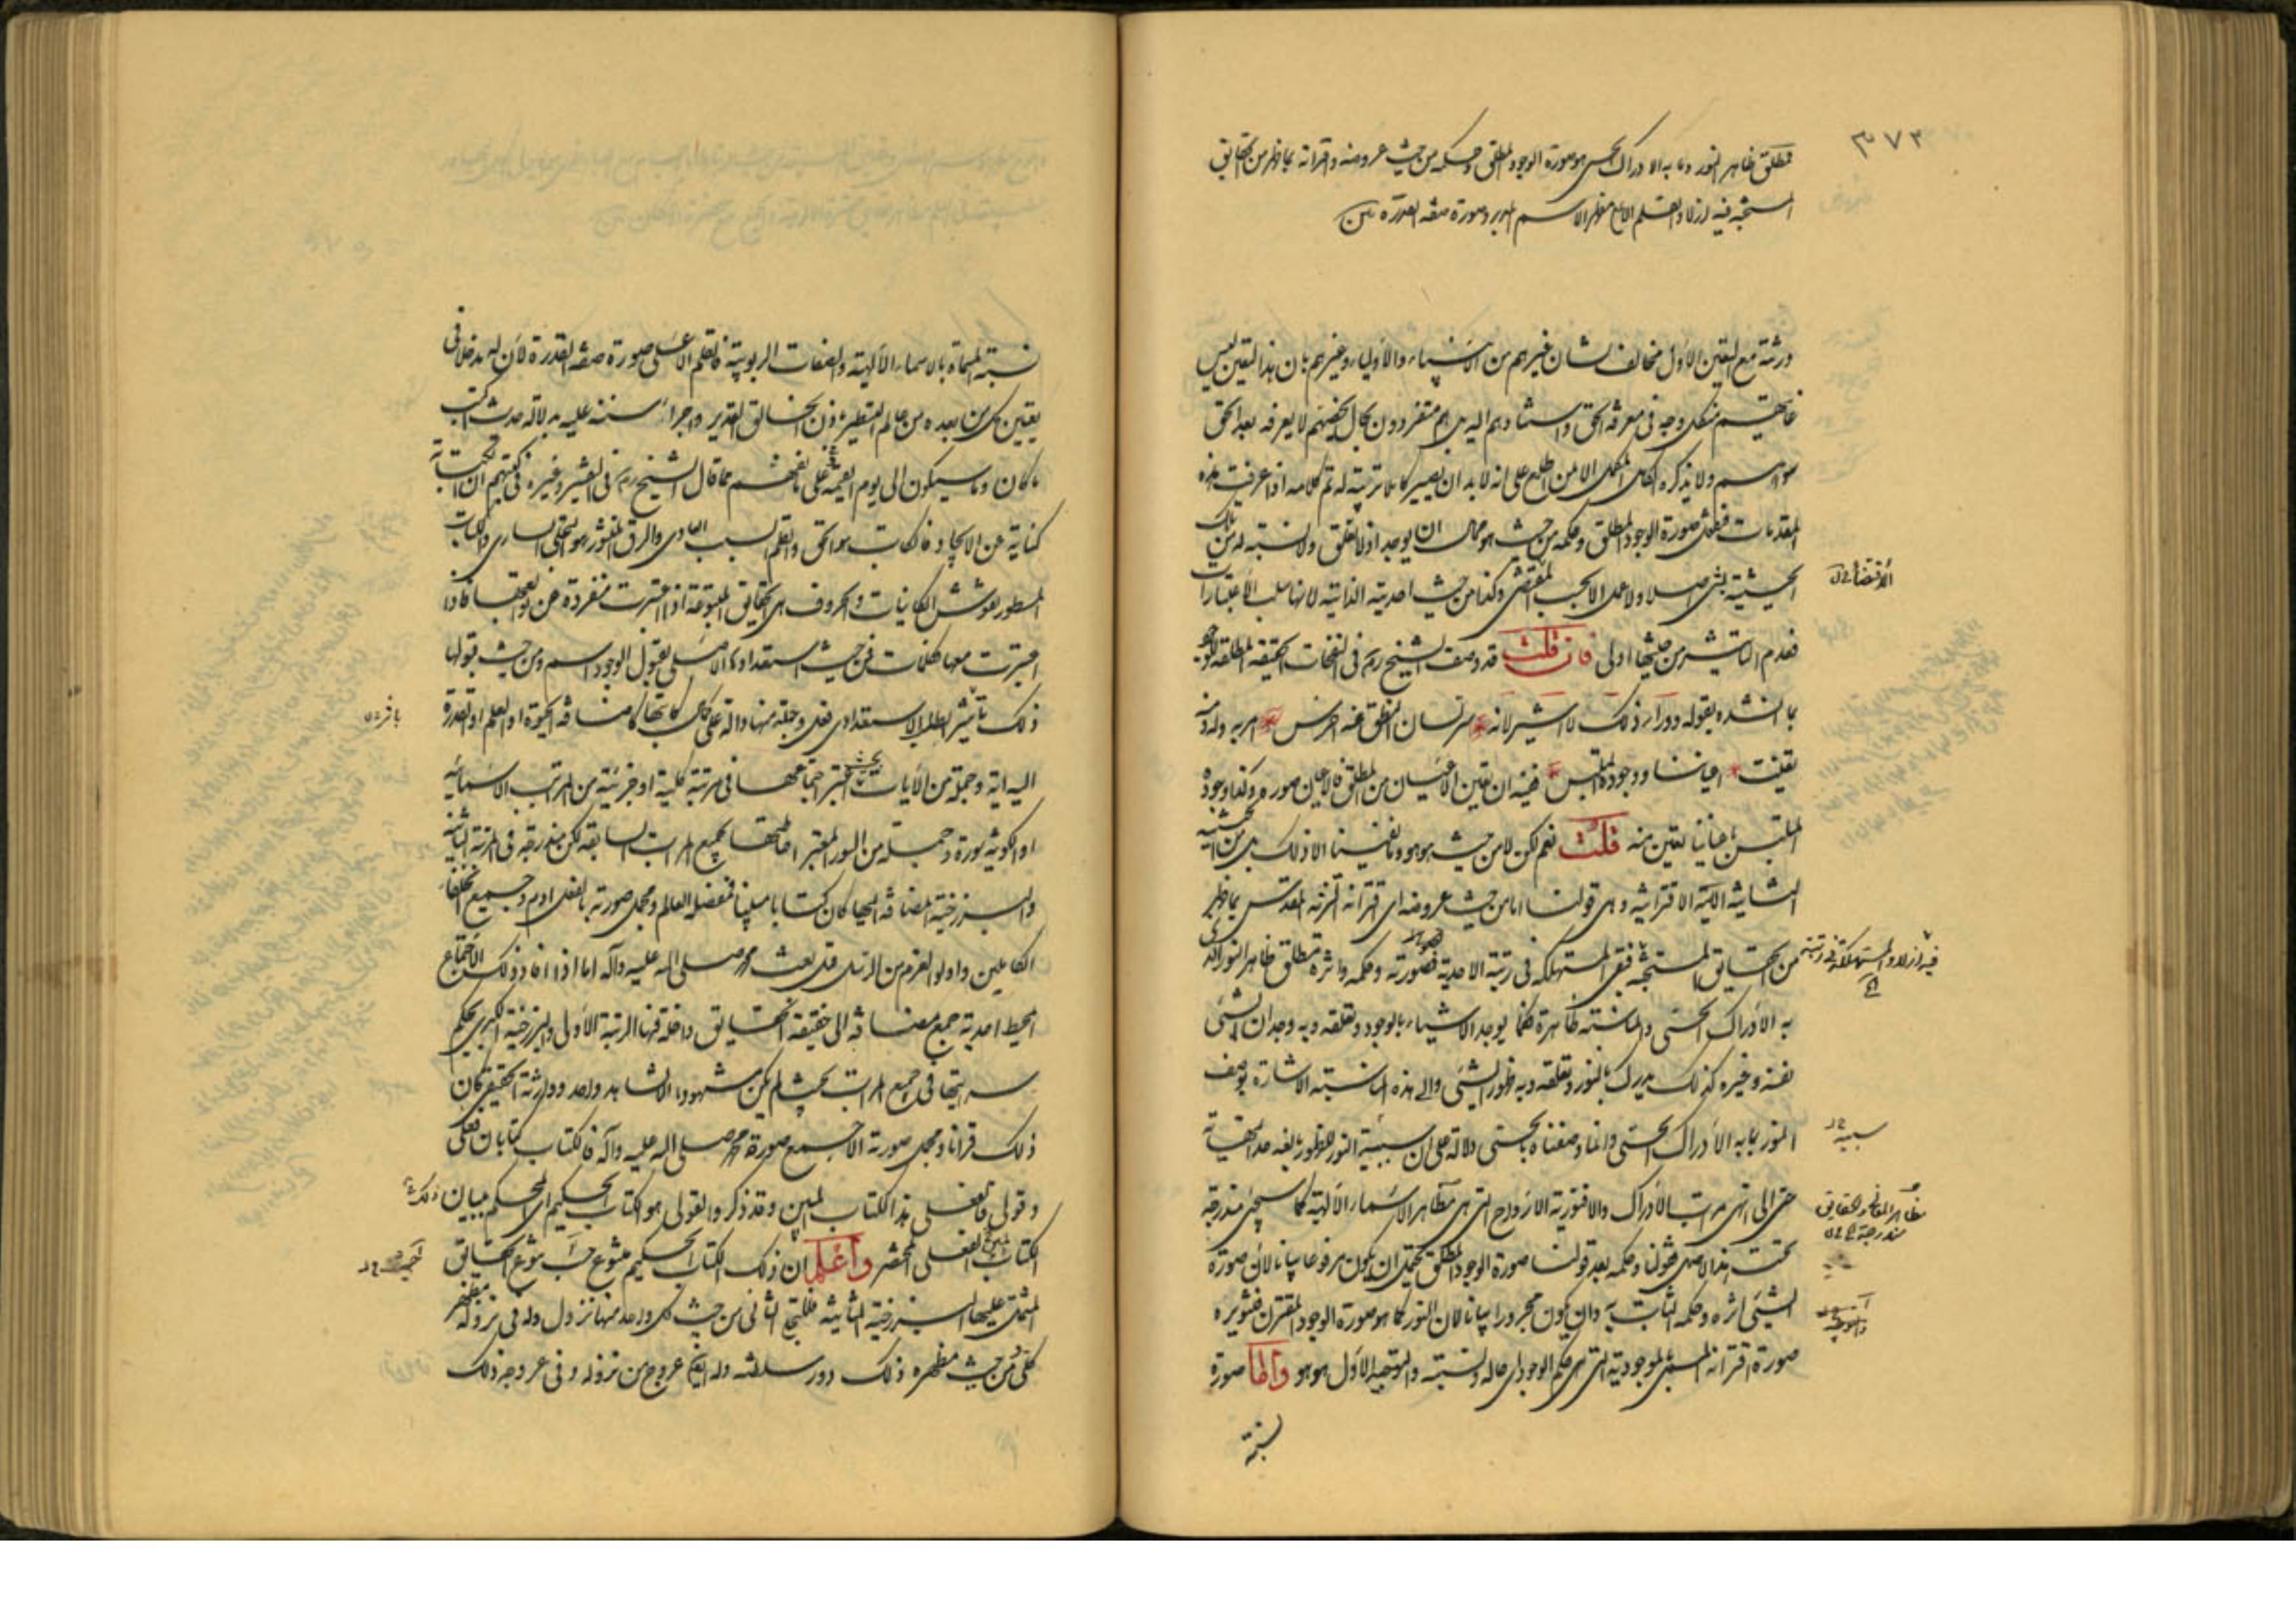 ٣٧٣
فمطلق ظاهر النور وما به الادراك الحسي هو صورة الوجود المطلق وحكمه من حيث عروضه واقترانه بما ظهر من الحقايق
المستجنة فيه ازلا والقلم الاعلى مظهر الاسم المدبر وصورة صفة القدرة
ورثته مع التعين الاول مخالف لشان غيرهم من الانبياء والاولياء وغيرهم بان هذا التعين ليس
غايتهم من كل وجه في معرفة الحق واستنادهم اليه بل هم متفردون بحال يخصهم لا يعرفه بعد الحق
سواهم ولا يذكره الكامل المكمل الا لمن اطلع على انه لا بد ان يصير كاملا تربيته له تم كلامه اذا عرفت هذه
المقدمات فنقول صورة الوجود المطلق وحكمه من حيث هو محال ان يوجد اذ لا تعلق ولا نسبة له من تلك
الحيثية بشئ اصلا ولا عمل الا بحسب المقتضى وكذا من حيث احديته الذاتية لانها سلب الاعتبارات
الاقتضاء
فعدم التاثير من حيثها اولى فان قلت قد وصف الشيخ ره في النفحات الحقيقة المطلقة
بما انشده بقوله وراء ذلك لا اشير لانه سر لسان النطق عنه اخرس امر به وله ومنه
تعينت اعياننا ووجوده الملتبس ففيه ان تعين الاعيان من المطلق فالاعيان صوره وكذا وجوده
الملتبس باعياننا تعين منه قلت نعم لكن لا من حيث هو هو وما نفينا الا ذلك بل من الحيثية
الثانية الآتية الاقترانية وهي قولنا اما من حيث عروضه اي اقترانه المقدس بما ظهر
من الحقايق المستجنة المستهلكة في رتبة الاحدية فصورته وحكمه واثره مطلق ظاهر النور الذي
فيه ازلا والمستهلكة في رتبته
به الادراك الحسي والمناسبة ظاهرة فكما يوجد الاشياء بالوجود وتعلقه وبه وجدان الشئ
نفسه وغيره كذلك يدرك بالنور وتعلقه وبه ظهور الشئ والى هذه المناسبة الاشارة بوصف
النور بما به الادراك الحسي وانما وصفناه بالحسي دلالة على ان سببية النور للظهور
سببية
حتى الى انهى مراتب الادراك والا فنورية الارواح التي هي مظاهر الاسماء الالهية كما سيجئ مندرجة
مظاهر الحقايق مندرجة
تحت هذا الاصل فقولنا وحكمه بعد قولنا صورة الوجود المطلق يحتمل ان يكون مرفوعا بيانا لان صورة
الشئ اثره وحكمه الثابت به وان يكون مجرورا بيانا لان النور كما هو صورة الوجود المقترن
صورة اقترانه الموجودية التي هي حكم الوجود اي حاله ونسبته والتوجيه الاول هو هو واما صورة
نسبته
نسبته المسماة بالاسماء الالهية والصفات الربوبية فالقلم الاعلى صورة صفة القدرة لان له مدخلا في
تعين كل من بعده من عالم التسطير باذن الخالق القدير واجراء سنته عليه بدلالة حديث اكتب
ما كان وما سيكون الى يوم القيمة على ما نفهم مما قال الشيخ ره في التفسير وغيره في كتبهم ان الكتابة
كناية عن الايجاد فالكاتب هو الحق والقلم السبب العادي والرق المنشور هو التجلي الساري والكتاب
المسطور نقوش الكائنات والحروف هي الحقايق المتبوعة اذا اعتبرت منفردة عن توابعها فاذا
اعتبرت معها فكلمات فمن حيث استعدادها الاصلي لقبول الوجود اسم ومن حيث قبولها
ذلك بتاثير الطلب الاستعدادي فعل وجملة منها دالة على كمال ما كاتبها كامضافة الحيوة او العلم او القدرة
اليه آية وجملة من الآيات يعتبر اجتماعها في مرتبة كلية او جزئية من المراتب الاسمائية
او الكونية سورة وجملة من السور المعتبر احاطتها بجميع المراتب السابقة لكن مندرجة في المرتبة الثانية
والبرزخية المضافة اليها كان كتابا مبينا فمفصله العالم ومجمل صورته بالفعل آدم وجميع الخلفاء
الكاملين واولوا العزم من الرسل قبل بعث محمد صلى الله عليه وآله اما اذا افاد ذلك الاجتماع
المحيط احدية جمع مضافة الى حقيقة الحقايق داخلة فيها الرتبة الاولى والبرزخية الكبرى بحكم
سرايتها في جميع المراتب بحيث لم يكن مشهودا الا لشاهد واحد وورثته الحقيقيين كان
ذلك قرانا ومجمل صورته الاجمع صورة محمد صلى الله عليه وآله فالكتاب كتابان فعلي
وقولي فالفعلي هذا الكتاب المبين وقد ذكر والقولي هو الكتاب الحكيم اي المحكم بتبيان ذلك
الكتاب الفعلي المختصر واعلم ان ذلك الكتاب الحكيم متنوع حسب تنوع الحقايق
المشتمل عليها البرزخية الثانية فللتجلي الثاني من حيث كل واحد منها نزول وله في نزوله مظهر
كلي من حيث مظهره ذلك دور سلطنة وله ايضا عروج من نزوله وفي عروجه ذلك